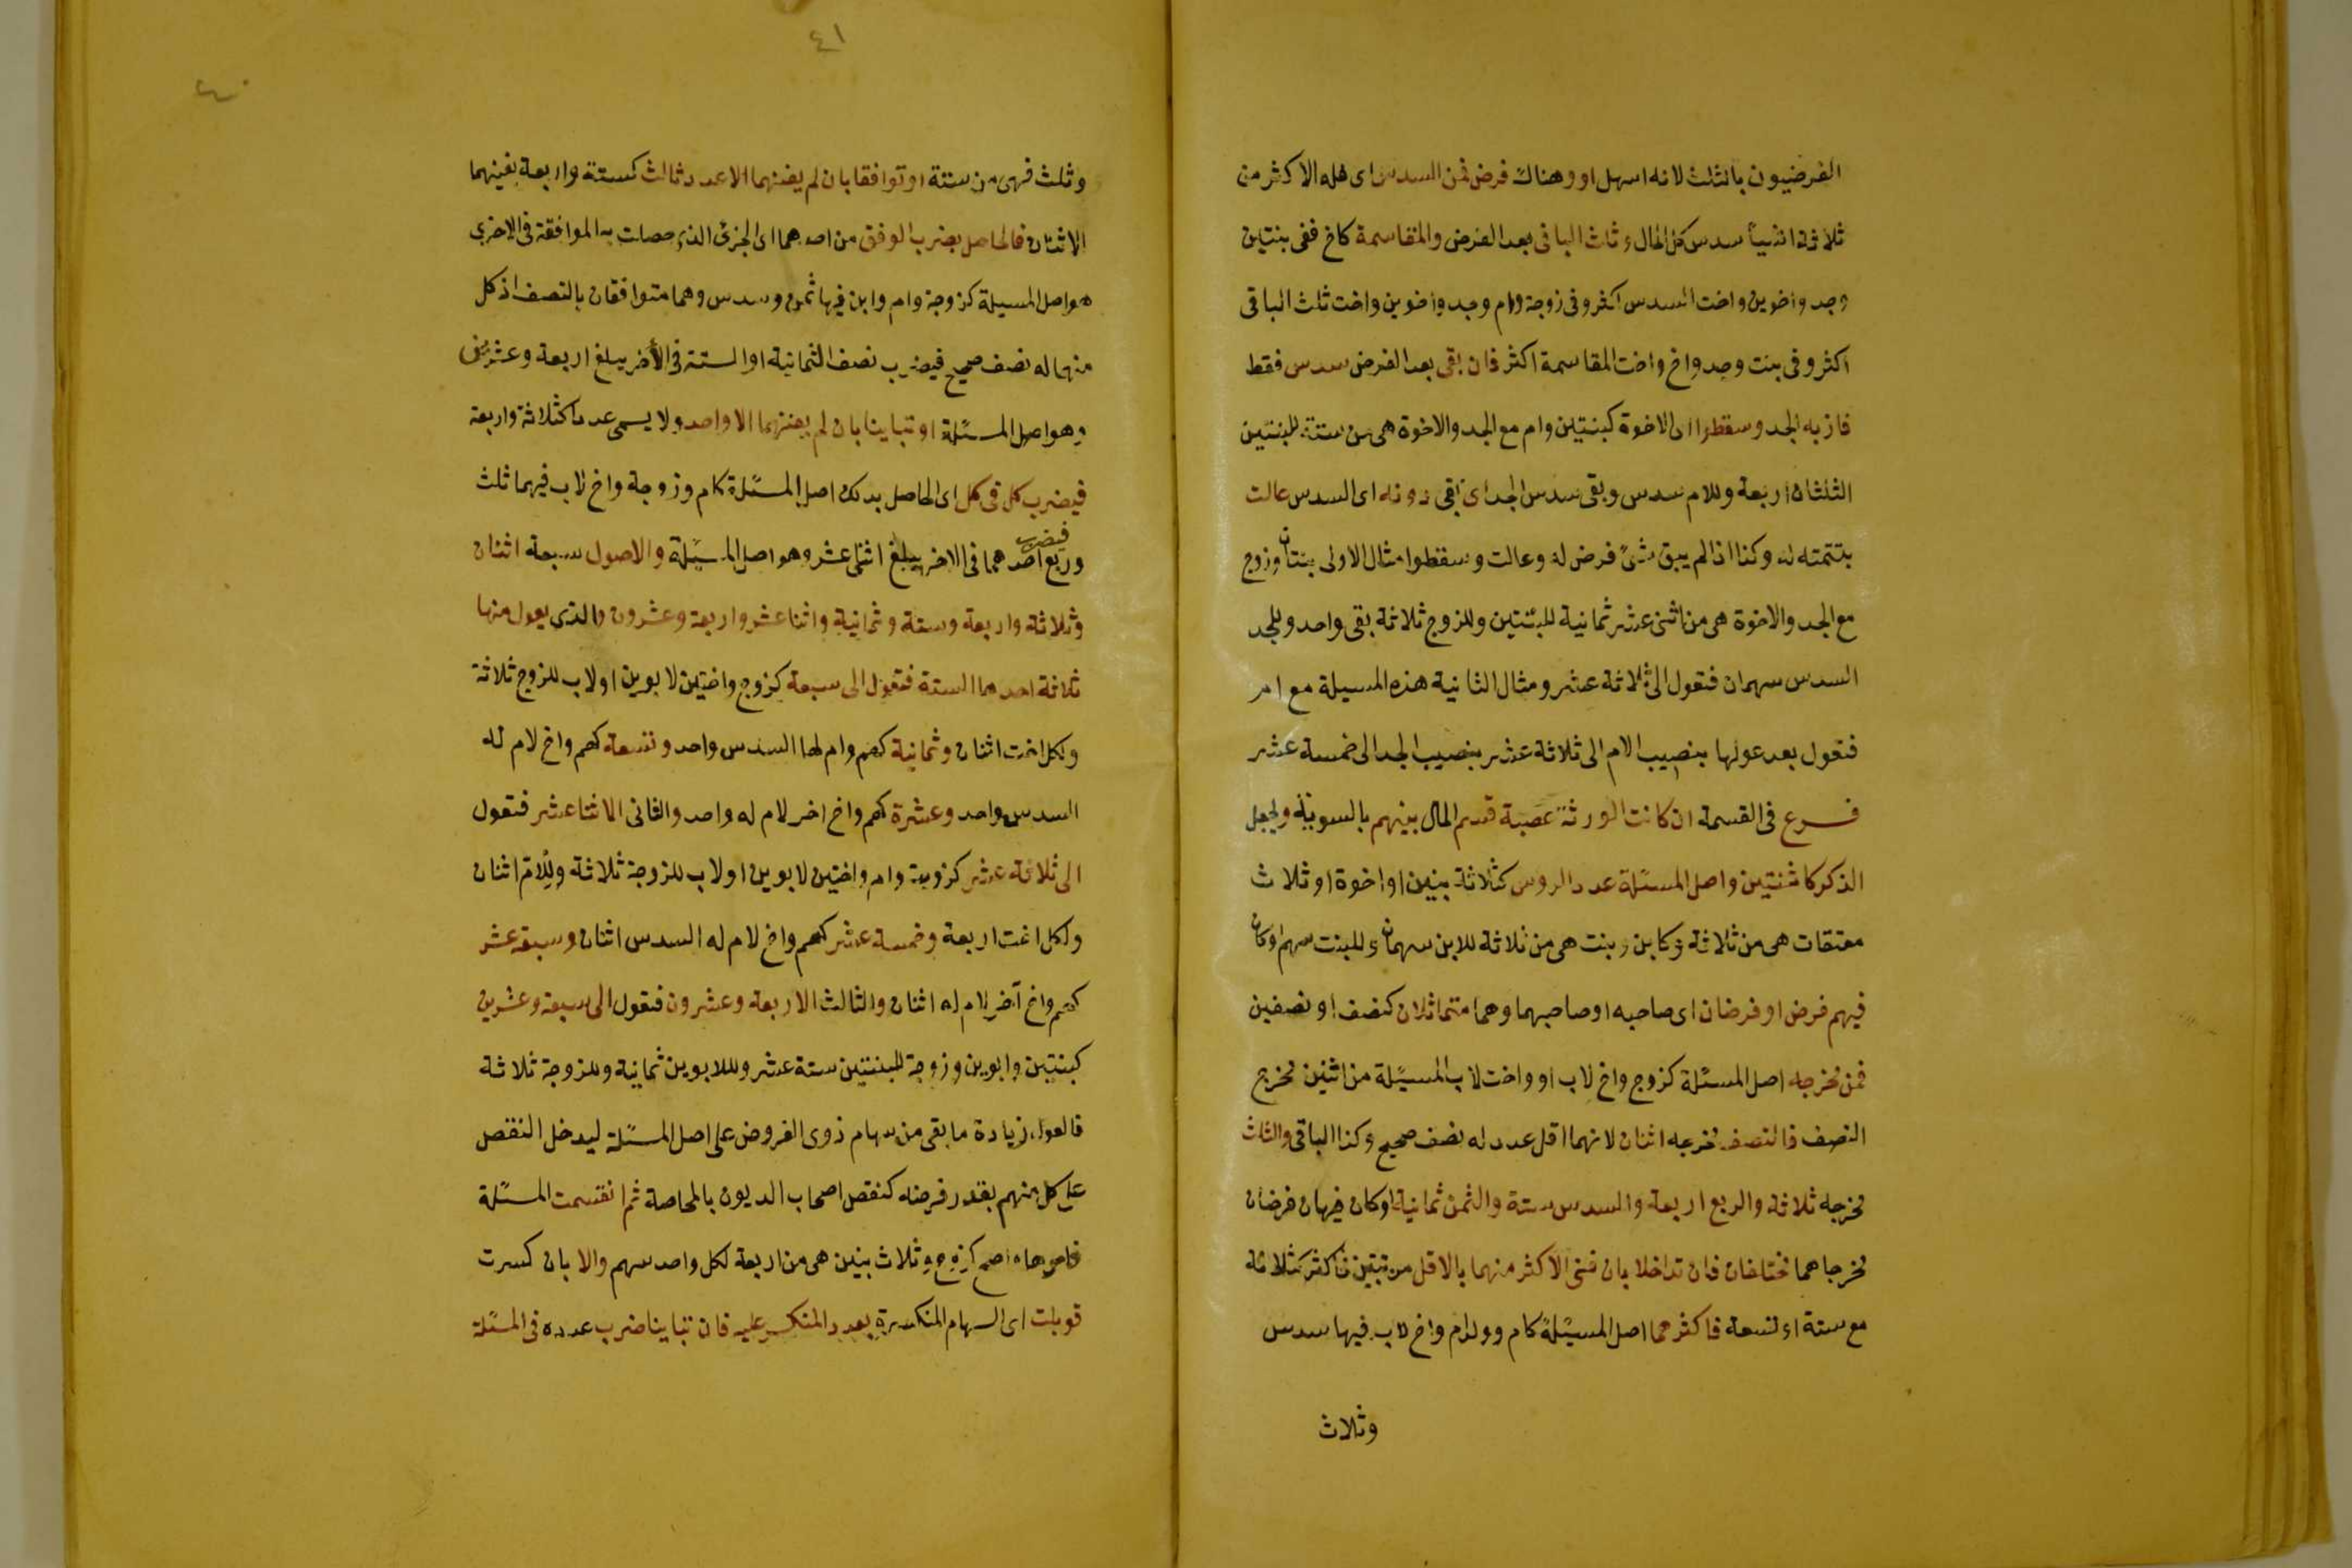 الفرضيون بالثلث لانه اسهل او وهناك فرض فمن السدس اى فله الاكثر من
ثلاثة اشياء سدس كل المال وثلث الباقى بعد الفرض والمقاسمة كاخ ففى بنتين
وجد واخوين واخت السدس اكثر وفى زوجة وام وجد واخوين واخت ثلث الباقى
اكثر وفى بنت وجد واخ واخت المقاسمة اكثر فان بقى بعد الفرض سدس فقط
فاز به الجد وسقطوا اى الاخوة كبنتين وام مع الجد والاخوة هى من ستة للبنتين
الثلثان اربعة وللام سدس وبقى سدس للجد اى بقى دونه اى السدس عالت
بتتمته له وكذا اذا لم يبق شئ فرض له وعالت وسقطوا مثال الاولى بنتان وزوج
مع الجد والاخوة هى من اثنى عشر ثمانية للبنتين وللزوج ثلاثة بقى واحد وللجد
السدس سهمان فتعول الى ثلاثة عشر ومثال الثانية هذه المسيلة مع ام
فتعول بعد عولها بنصيب الام الى ثلاثة عشر بنصيب الجد الى خمسة عشر
فرع فى القسمة ان كانت الورثة عصبة قسم المال بينهم بالسوية ويجعل
الذكر كانثيين واصل المسئلة عدد الروس كثلاثة بنين او اخوة او ثلاث
معتقات هى من ثلاثة وكابن وبنت هى من ثلاثة للابن سهمان وللبنت سهم او كان
فيهم فرض او فرضان اى صاحبه او صاحبهما وهما متماثلان كنصف او نصفين
فمن مخرجه اصل المسئلة كزوج واخ لاب او واخت لاب المسيئلة من اثنين مخرج
النصف فالنصف مخرجه اثنان لانهما اقل عدد له نصف صحيح وكذا الباقى والثلث
مخرجه ثلاثة والربع اربعة والسدس ستة والثمن ثمانية او كان فيها فرضان
مخرجاهما مختلفان فان تداخلا بان فنى الاكثر منهما بالاقل مرتين فاكثر كثلاثة
مع ستة او تسعة فاكثرهما اصل المسيئلة كام وولد ام واخ لاب فيها سدس
وثلاث
٤١
٤٠
وثلث فهى من ستة او توافقا بان لم يفنهما الا عدد ثالث كستة واربعة يفنيهما
الاثنان فالحاصل بضرب الوفق من احدهما اى الجزئ الذى حصلت به الموافقة فى الاخرى
هو اصل المسيلة كزوجة وام وابن فيها ثمن وسدس وهما متوافقان بالنصف اذ كل
منهما له نصف صحيح فيضرب نصف الثمانية او الستة فى الأخر يبلغ اربعة وعشرين
وهو اصل المسئلة او تباينا بان لم يفنهما الا واحد ولا يسمى عددا كثلاثة واربعة
فيضرب كل فى كل اى الحاصل بذلك اصل المسئلة كام وزوجة واخ لاب فيهما ثلث
وربع فيضرب احدهما فى الاخر يبلغ اثنى عشر وهو اصل المسيئلة والاصول سبعة اثنان
وثلاثة واربعة وستة وثمانية واثنا عشر واربعة وعشرون والذى يعول منها
ثلاثة احدهما الستة فتعول الى سبعة كزوج واختين لابوين او لاب للزوج ثلاثة
ولكل اخت اثنان وثمانية كهم وام لها السدس واحد وتسعة كهم واخ لام له
السدس واحد وعشرة كهم واخ اخر لام له واحد والثانى الاثنا عشر فتعول
الى ثلاثة عشر كزوجة وام واختين لابوين او لاب للزوجة ثلاثة وللام اثنان
ولكل اخت اربعة وخمسة عشر كهم واخ لام له السدس اثنان وسبعة عشر
كهم واخ آخر لام له اثنان والثالث الاربعة وعشرون فتعول الى سبعة وعشرين
كبنتين وابوين وزوجة للبنتين ستة عشر وللابوين ثمانية وللزوجة ثلاثة
فالعول زيادة ما بقى من سهام ذوى الفروض على اصل المسئلة ليدخل النقص
على كل منهم بقدر فرضه كنقص اصحاب الديون بالمحاصة ثم انقسمت المسئلة
كزوج وثلاث بنين هى من اربعة لكل واحد سهم والا بان كسرت
قوبلت اى السهام المنكسرة بعدد المنكسر عليه فان تباينا ضرب عدده فى المسئلة